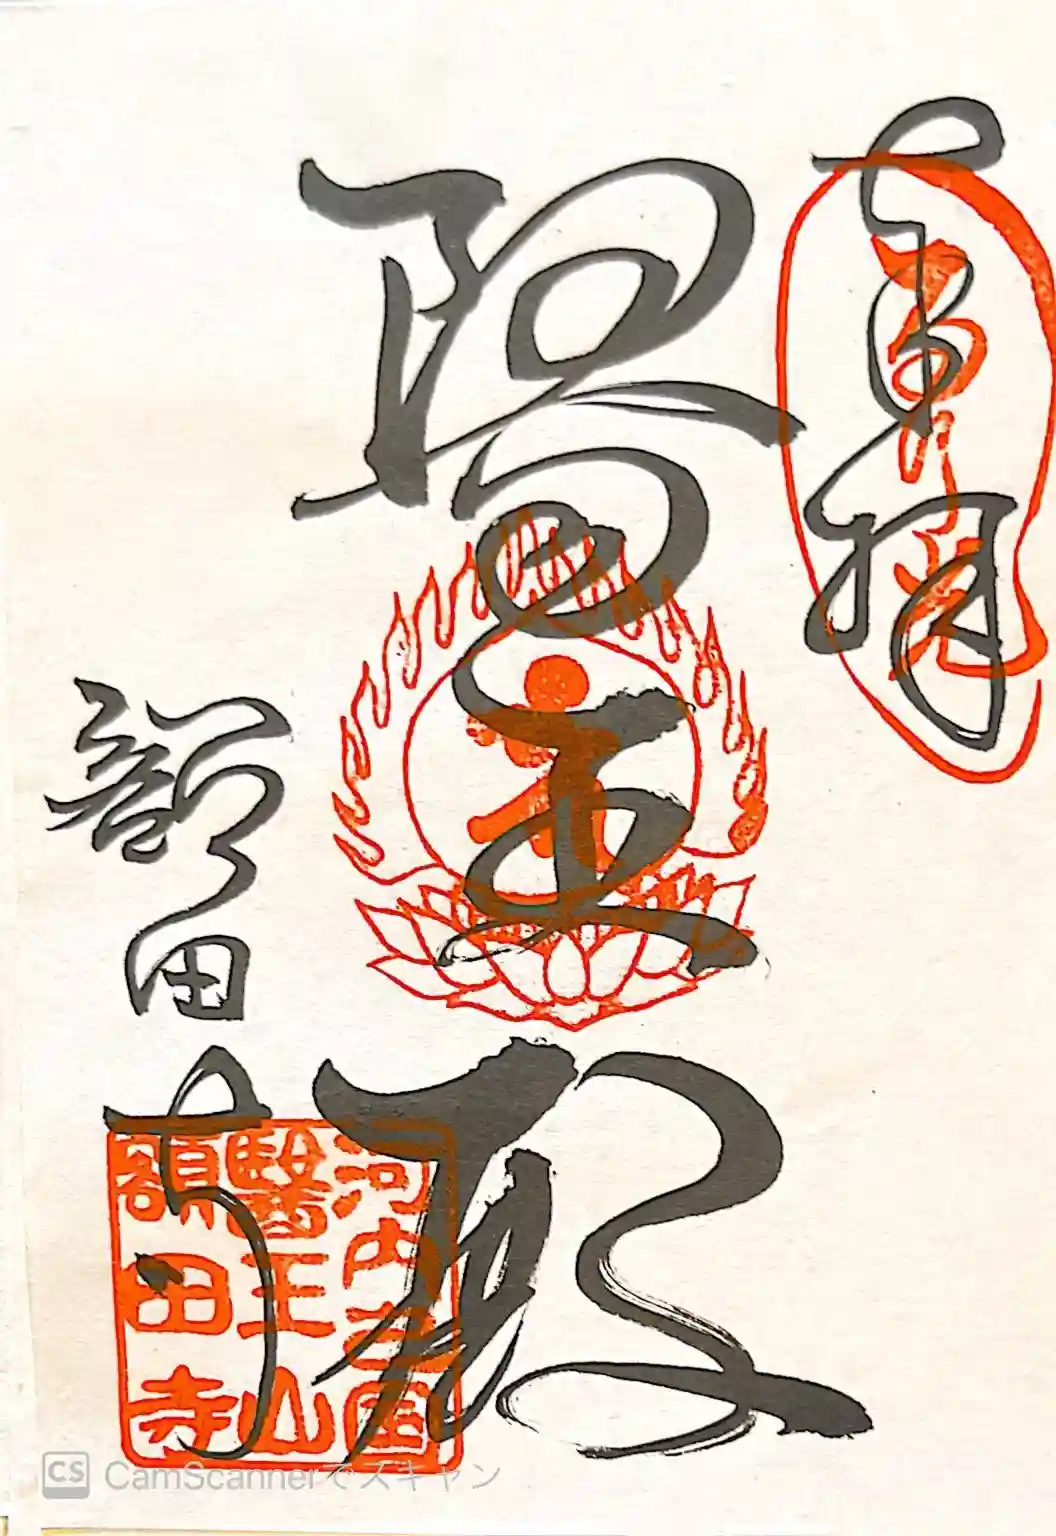 奉拝
醫王殿
額田寺
河内国
醫王山
額田寺
CS CamScannerでスキャン